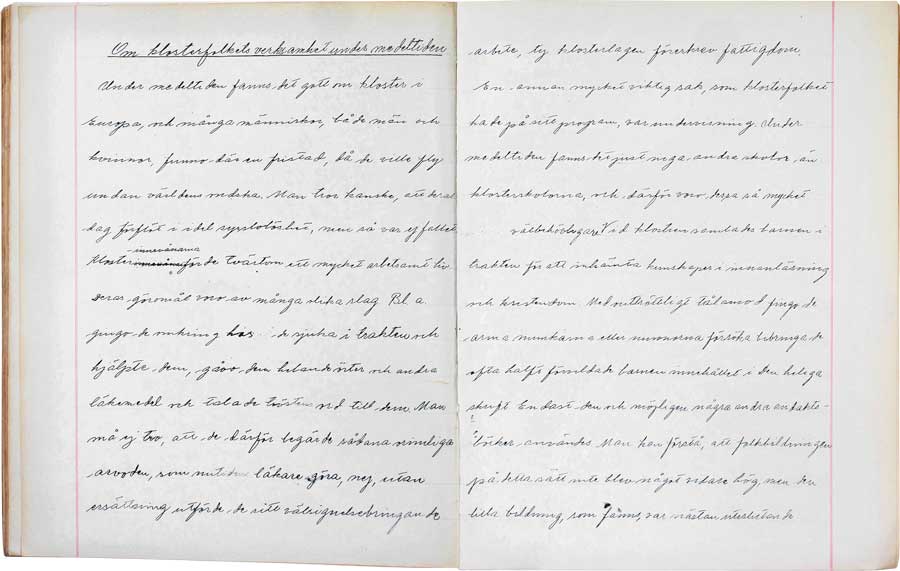 Om klosterfolkets verksamhet under medeltiden
Under medeltiden fanns det gott om kloster i
Europa, och många människor, både män och
kvinnor, funno där en fristad, då de ville fly
undan världens ondska. Man tror kanske, att deras
dag förflöt i idel sysslolöshet, men så var ej fallet.
Klosterinnevånarna förde tvärtom ett mycket arbetsamt liv.
Deras göromål voro av många olika slag. Bl. a.
gingo de omkring hos de sjuka i trakten och
hjälpte dem, gåvo dem helande örter och andra
läkemedel och talade tröstens ord till dem. Man
må ej tro, att de därför begärde sådana orimliga
arvoden, som nutidens läkare göra, nej, utan
ersättning utförde de sitt välsignelsebringande
arbete, ty klosterlagen föreskrev fattigdom.
En annan mycket viktig sak, som klosterfolket
hade på sitt program, var undervisning. Under
medeltiden fanns det just inga andra skolor än
klosterskolorna, och därför voro dessa så mycket
välbehövligare. Vid klostren samlades barnen i
trakten för att inhämta kunskaper i innanläsning
och kristendom. Med outtröttligt tålamod fingo de
arma munkarna eller nunnorna försöka bibringa de
ofta halft förvildade barnen innehållet i den heliga
skrift. Endast den och möjligen några andra andakts-
böcker användes. Man kan förstå, att folkbildningen
på detta sätt inte blev något vidare hög, men den
lilla bildning, som fanns, var nästan uteslutande